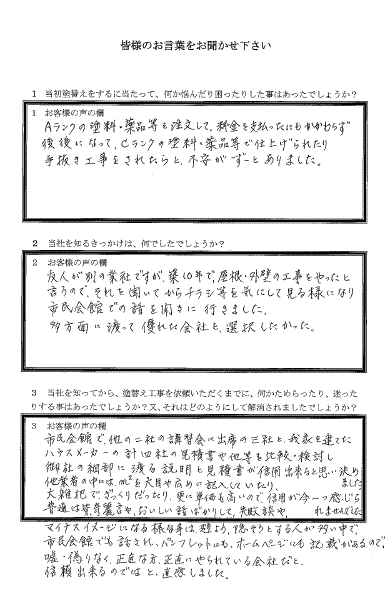 皆様のお言葉をお聞かせ下さい
1 当初塗替えをするに当たって、何か悩んだり困ったりした事はあったでしょうか？
1 お客様の声の欄
Aランクの塗料・薬品等を注文して、料金を支払ったにもかかわらず
後後になって、Cランクの塗料・薬品等で仕上げられたり
手抜き工事をされたらと、不安がずーとありました。
2 当社を知るきっかけは、何でしたでしょうか？
2 お客様の声の欄
友人が別の業社ですが、築10年で屋根・外壁の工事をやったと
言うので、それを聞いてからチラシ等を気にして見る様になり
市民会館での話を聞きに行きました。
多方面に渡って優れた会社を、選択したかった。
3 当社を知ってから、塗替え工事を依頼いただくまでに、何かためらったり、迷った
りする事はあったでしょうか？又、それはどのようにして解消されましたでしょうか？
3 お客様の声の欄
市民会館で、他の二社の講習会に出席の三社と、我家を建てた
ハウスメーカーの計四社の見積書や他等を比較・検討し
御社の細部に渡る説明と見積書が信用出来ると思い決めました
他業者の中には、m²を大目や広めに記入していたり、
大雑把でざっくりだったり、更に単価も高いので信用が今一つ感じられませんでした
普通は美辞麗言や、おいしい話ばかりして、失敗談や、
マイナスイメージになる様な事は避よう、隠そうとする人が多い中で、
市民会館でも話され、パンフレットにも、ホームページにも記載があるので、
嘘・偽りなく、正直な方、正直にやられている会社だと、
信頼出来るのではと、直感しました。